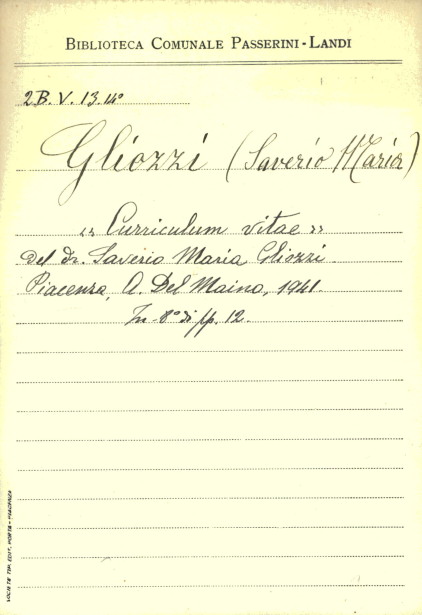 BIBLIOTECA COMUNALE PASSERINI-LANDI
2B. V. 13. 14°
Gliozzi (Saverio Maria)
"Curriculum vitae"
del dr. Saverio Maria Gliozzi.
Piacenza, A. Del Maino, 1941.
In-8° di pp. 12.